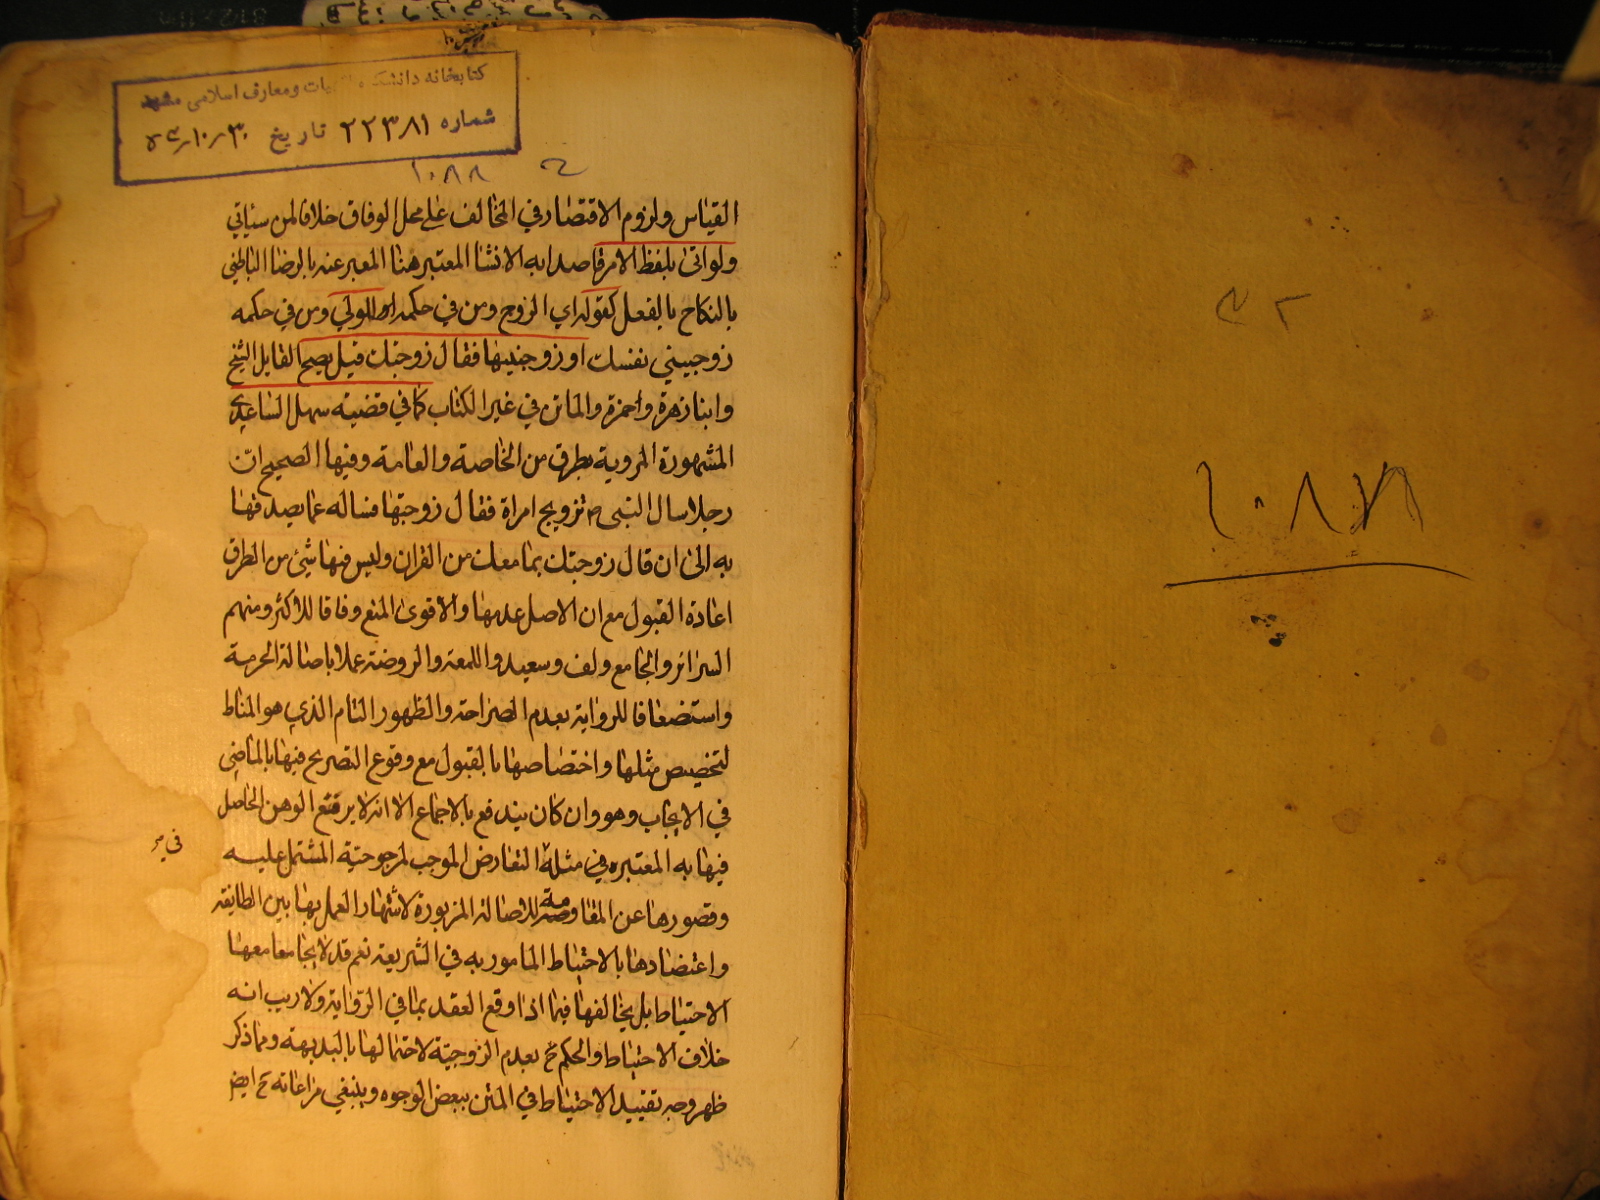 ١٠٨٨
كتابخانه دانشكده الهيات ومعارف اسلامى مشهد
شماره ٢٢٣٨١ تاريخ
١٠٨٨
القياس ولزوم الاقتصار في المخالف على محل الوفاق خلافا لمن سياتي
ولو اتى بلفظ الامر قاصدا به الانشا المعتبر هنا المعبر عنه بالرضا الباطني
بالنكاح بالفعل كقوله اي الزوج ومن في حكمه او الولي ومن في حكمه
زوجيني نفسك او زوجنيها فقال زوجتك قيل يصح القايل الشيخ
وابنا زهرة وحمزة والماتن في غير الكتاب كما في قضية سهل الساعدي
المشهورة المروية بطرق من الخاصة والعامة وفيها الصحيح ان
رجلا سال النبي ص تزويج امراة فقال زوجتها فساله عما يصدقها
به الى ان قال زوجتك بما معك من القران وليس فيها شئ من الطرق
اعادة القبول مع ان الاصل عدمها والاقوى المنع وفاقا للاكثر ومنهم
السرائر والجامع ولف وسعيد واللمعة والروضة عملا باصالة الحرمة
واستضعافا للرواية بعدم الصراحة والظهور التام الذي هو المناط
لتخصيص مثلها واختصاصها بالقبول مع وقوع التصريح فيها بالماضي
في الايجاب وهو وان كان يندفع بالاجماع الا انه لا يرفع الوهن الحاصل
فيها به المعتبره في مثله التعارض الموجب لمرجوحية المشتمل عليه
وقصورها عن المقاومة للاصالة المزبورة لاشتهار العمل بها بين الطايفة
واعتضادها بالاحتياط المامور به في الشريعة نعم قد لا يجامعها معها
الاحتياط بل يخالفها فيما اذا وقع العقد بما في الرواية ولا ريب انه
خلاف الاحتياط والحكم ح بعدم الزوجية لاحتمالها بالبديهة ومما ذكر
ظهر وجه تقييد الاحتياط في المتن ببعض الوجوه وينبغي مراعاته ح ايض